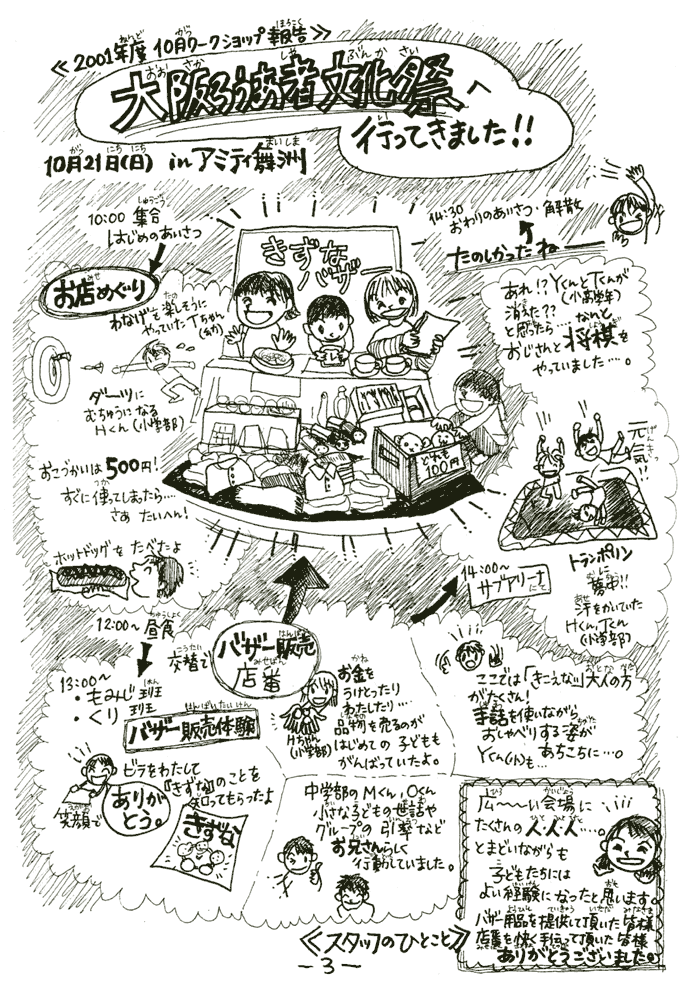 ≪2001年度 10月ワークショップ報告≫
大阪ろうあ者文化祭へ
行ってきました!!
10月21日(日) in アミティ舞洲
10:00 集合
はじめのあいさつ
お店めぐり
わなげを楽しそうに
やっていたTちゃん
ダーツに
むちゅうになる
Hくん(小学部)
おこづかいは500円!
すぐに使ってしまったら…
さぁ たいへん!
ホットドッグを たべたよ
12:00~ 昼食
きずな
バザー
どれも
100円
14:30
おわりのあいさつ・解散
たのしかったねー
あれ!?YくんとTくんが
(小高学年)
消えた??
と思ったら… なんと
おじさんと将棋を
やっていました…。
元気!!
トランポリン
夢中!!
汗をかいていた
Hくん、Tくん
(小学部)
14:00~
サブアリーナ
にて
交替で
バザー販売
店番
13:00~
・もみじ班
・くり 班
バザー販売体験
お金を
うけとったり
わたしたり…
品物を売るのが
はじめての子どもも
がんばっていたよ。
Hちゃん
(小学部)
ここでは「きこえない」大人の方
がたくさん!
手話を使いながら
おしゃべりする姿が
あちこちに…。
Yくん(小)も…
ビラをわたして
『きずな』のことを
知ってもらったよ
ありが
とう。
笑顔で
きずな
中学部のMくん,Oくん
小さな子どもの世話や
グループの引率など
お兄さんらしく
行動していました。
広~~い会場に
たくさんの人人人…。
とまどいながらも
子どもたちには
よい経験になったと思います。
バザー用品を提供して頂いた皆様
店番を快く手伝って頂いた皆様
ありがとうございました。
≪スタッフのひとこと≫
-3-